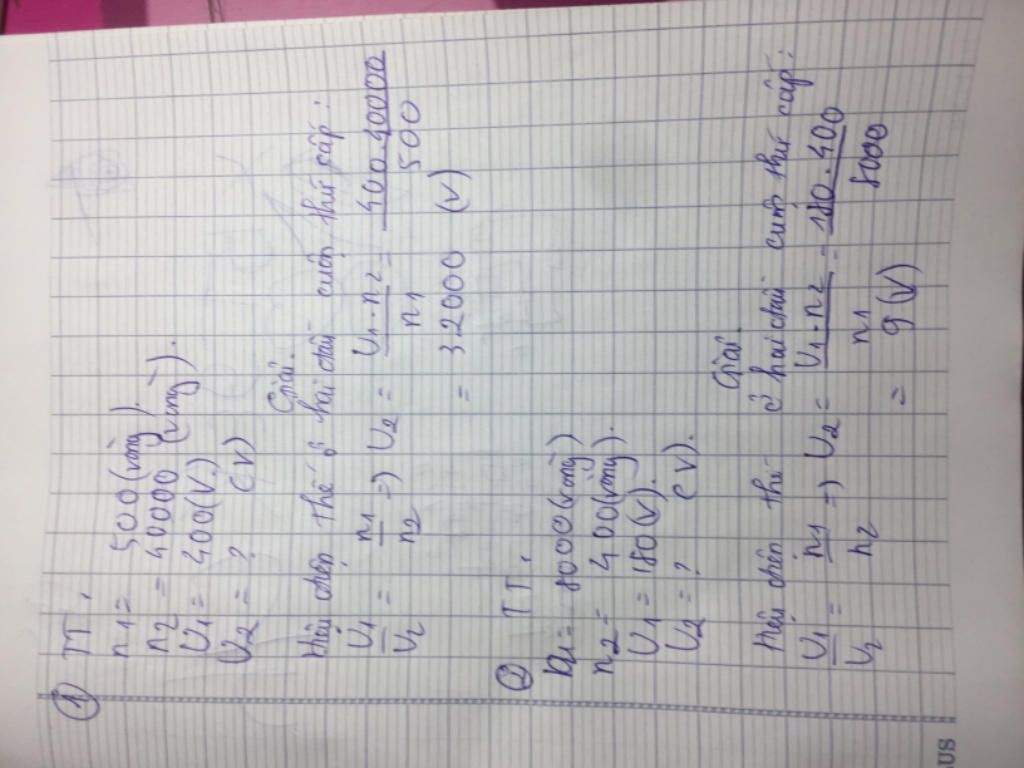 ① TT.
n1 = 500 (vòng).
n2 = 40000 (vòng).
U1 = 400 (V.)
U2 = ? (V)
Giải.
Hiệu điện thế ở hai đầu cuộn thứ cấp:
U1/U2 = n1/n2 => U2 = U1.n2/n1 = 400.40000/500
= 32000 (V)
② TT.
n1 = 8000 (vòng)
n2 = 400 (vòng).
U1 = 180 (V).
U2 = ? (V).
Giải.
Hiệu điện thế ở hai đầu cuộn thứ cấp:
U1/U2 = n1/n2 => U2 = U1.n2/n1 = 180.400/8000
= 9 (V)